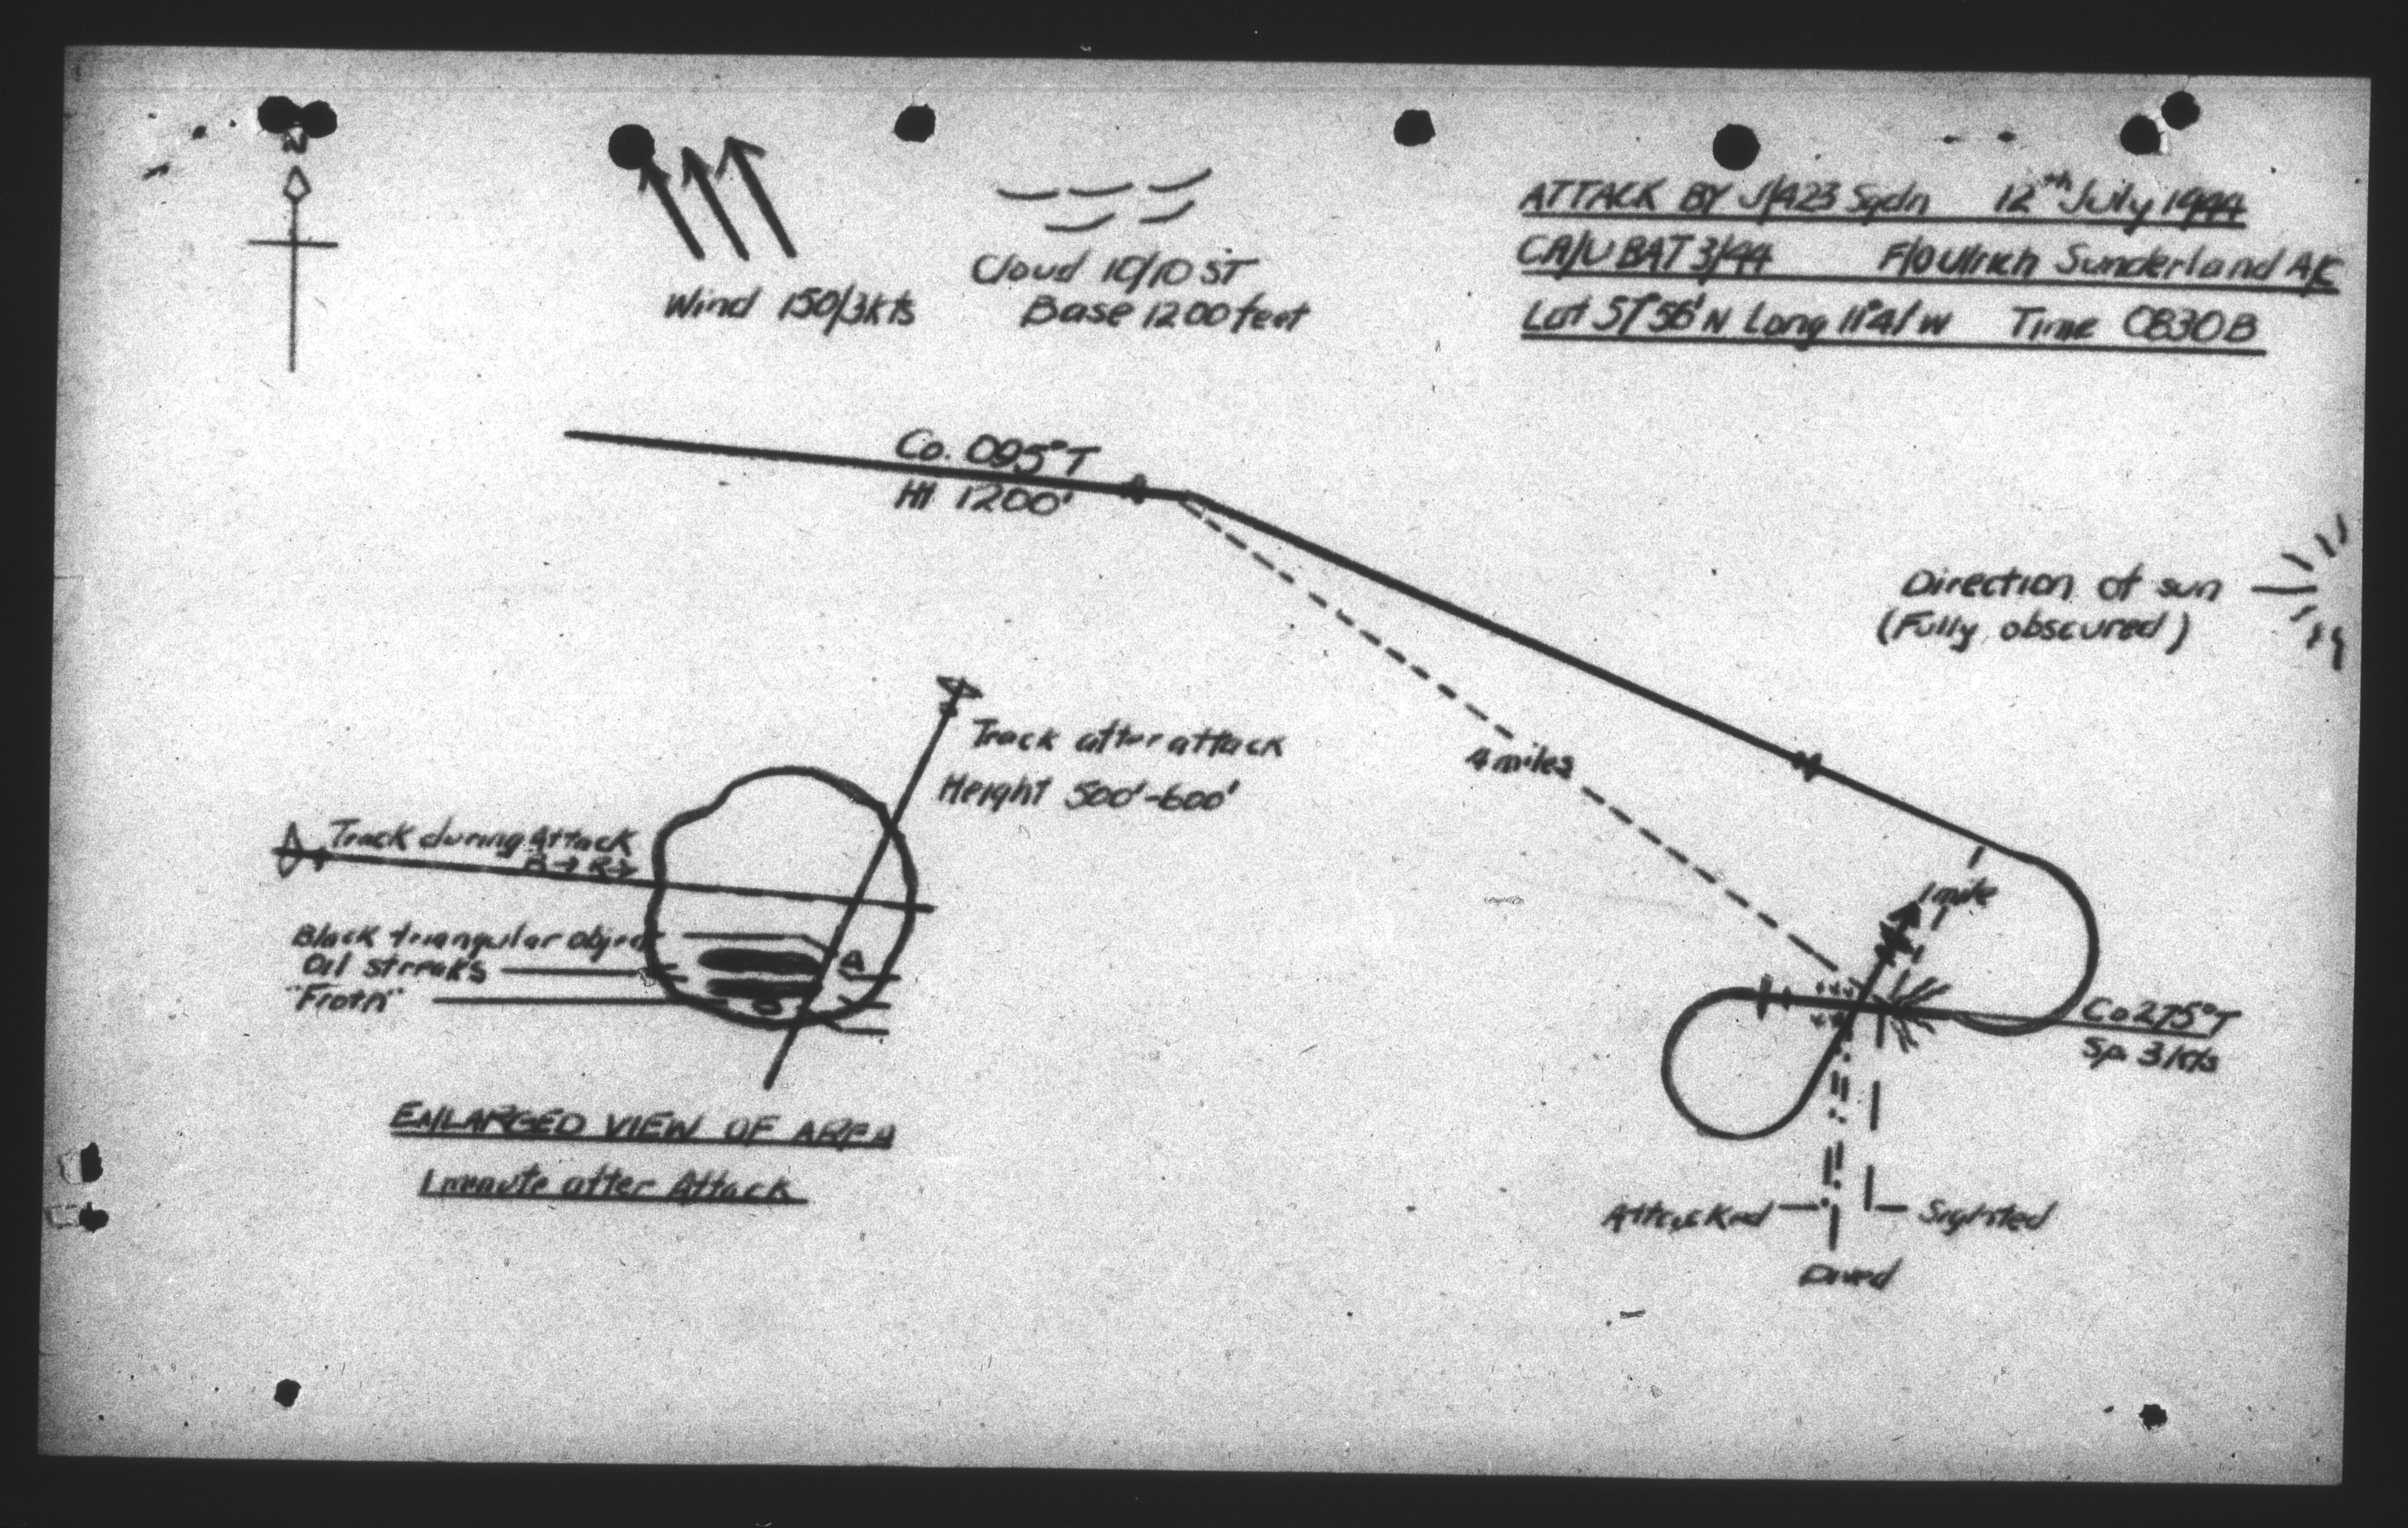 N
Wind 150/3Kts
Cloud 10/10 ST
Base 1200 feet
ATTACK BY J/423 Sqdn 12th July 1944
CA/UBAT 3/44 F/O Ulrich Sunderland A/C
Lat 57°56'N Long 11°41'W Time 0830B
Co. 095°T
Ht 1200'
Direction of sun
(Fully obscured)
4 miles
1 mile
Co 275°T
Sp. 3 Kts
Attacked
Sighted
Dived
Track after attack
Height 500'-600'
Track during Attack
R→ R→
Black triangular object
Oil streaks
"Froth"
A
ENLARGED VIEW OF AREA
1 minute after Attack